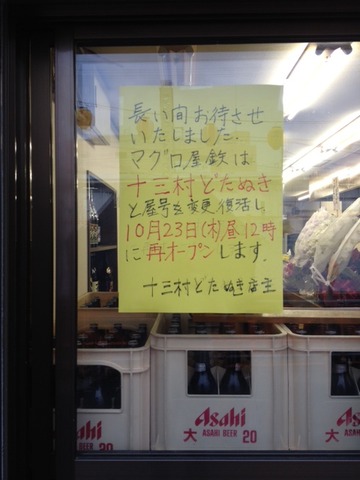 長い間お待たせ
いたしました.
マグロ屋鉄は
十三村どたぬき
と屋号を変更復活し
10月23日(木)昼12時
に再オープンします.
十三村どたぬき店主
Asahi
大 ASAHI BEER 20
Asahi
大 ASAHI BEER 20
Asahi
大 ASAHI